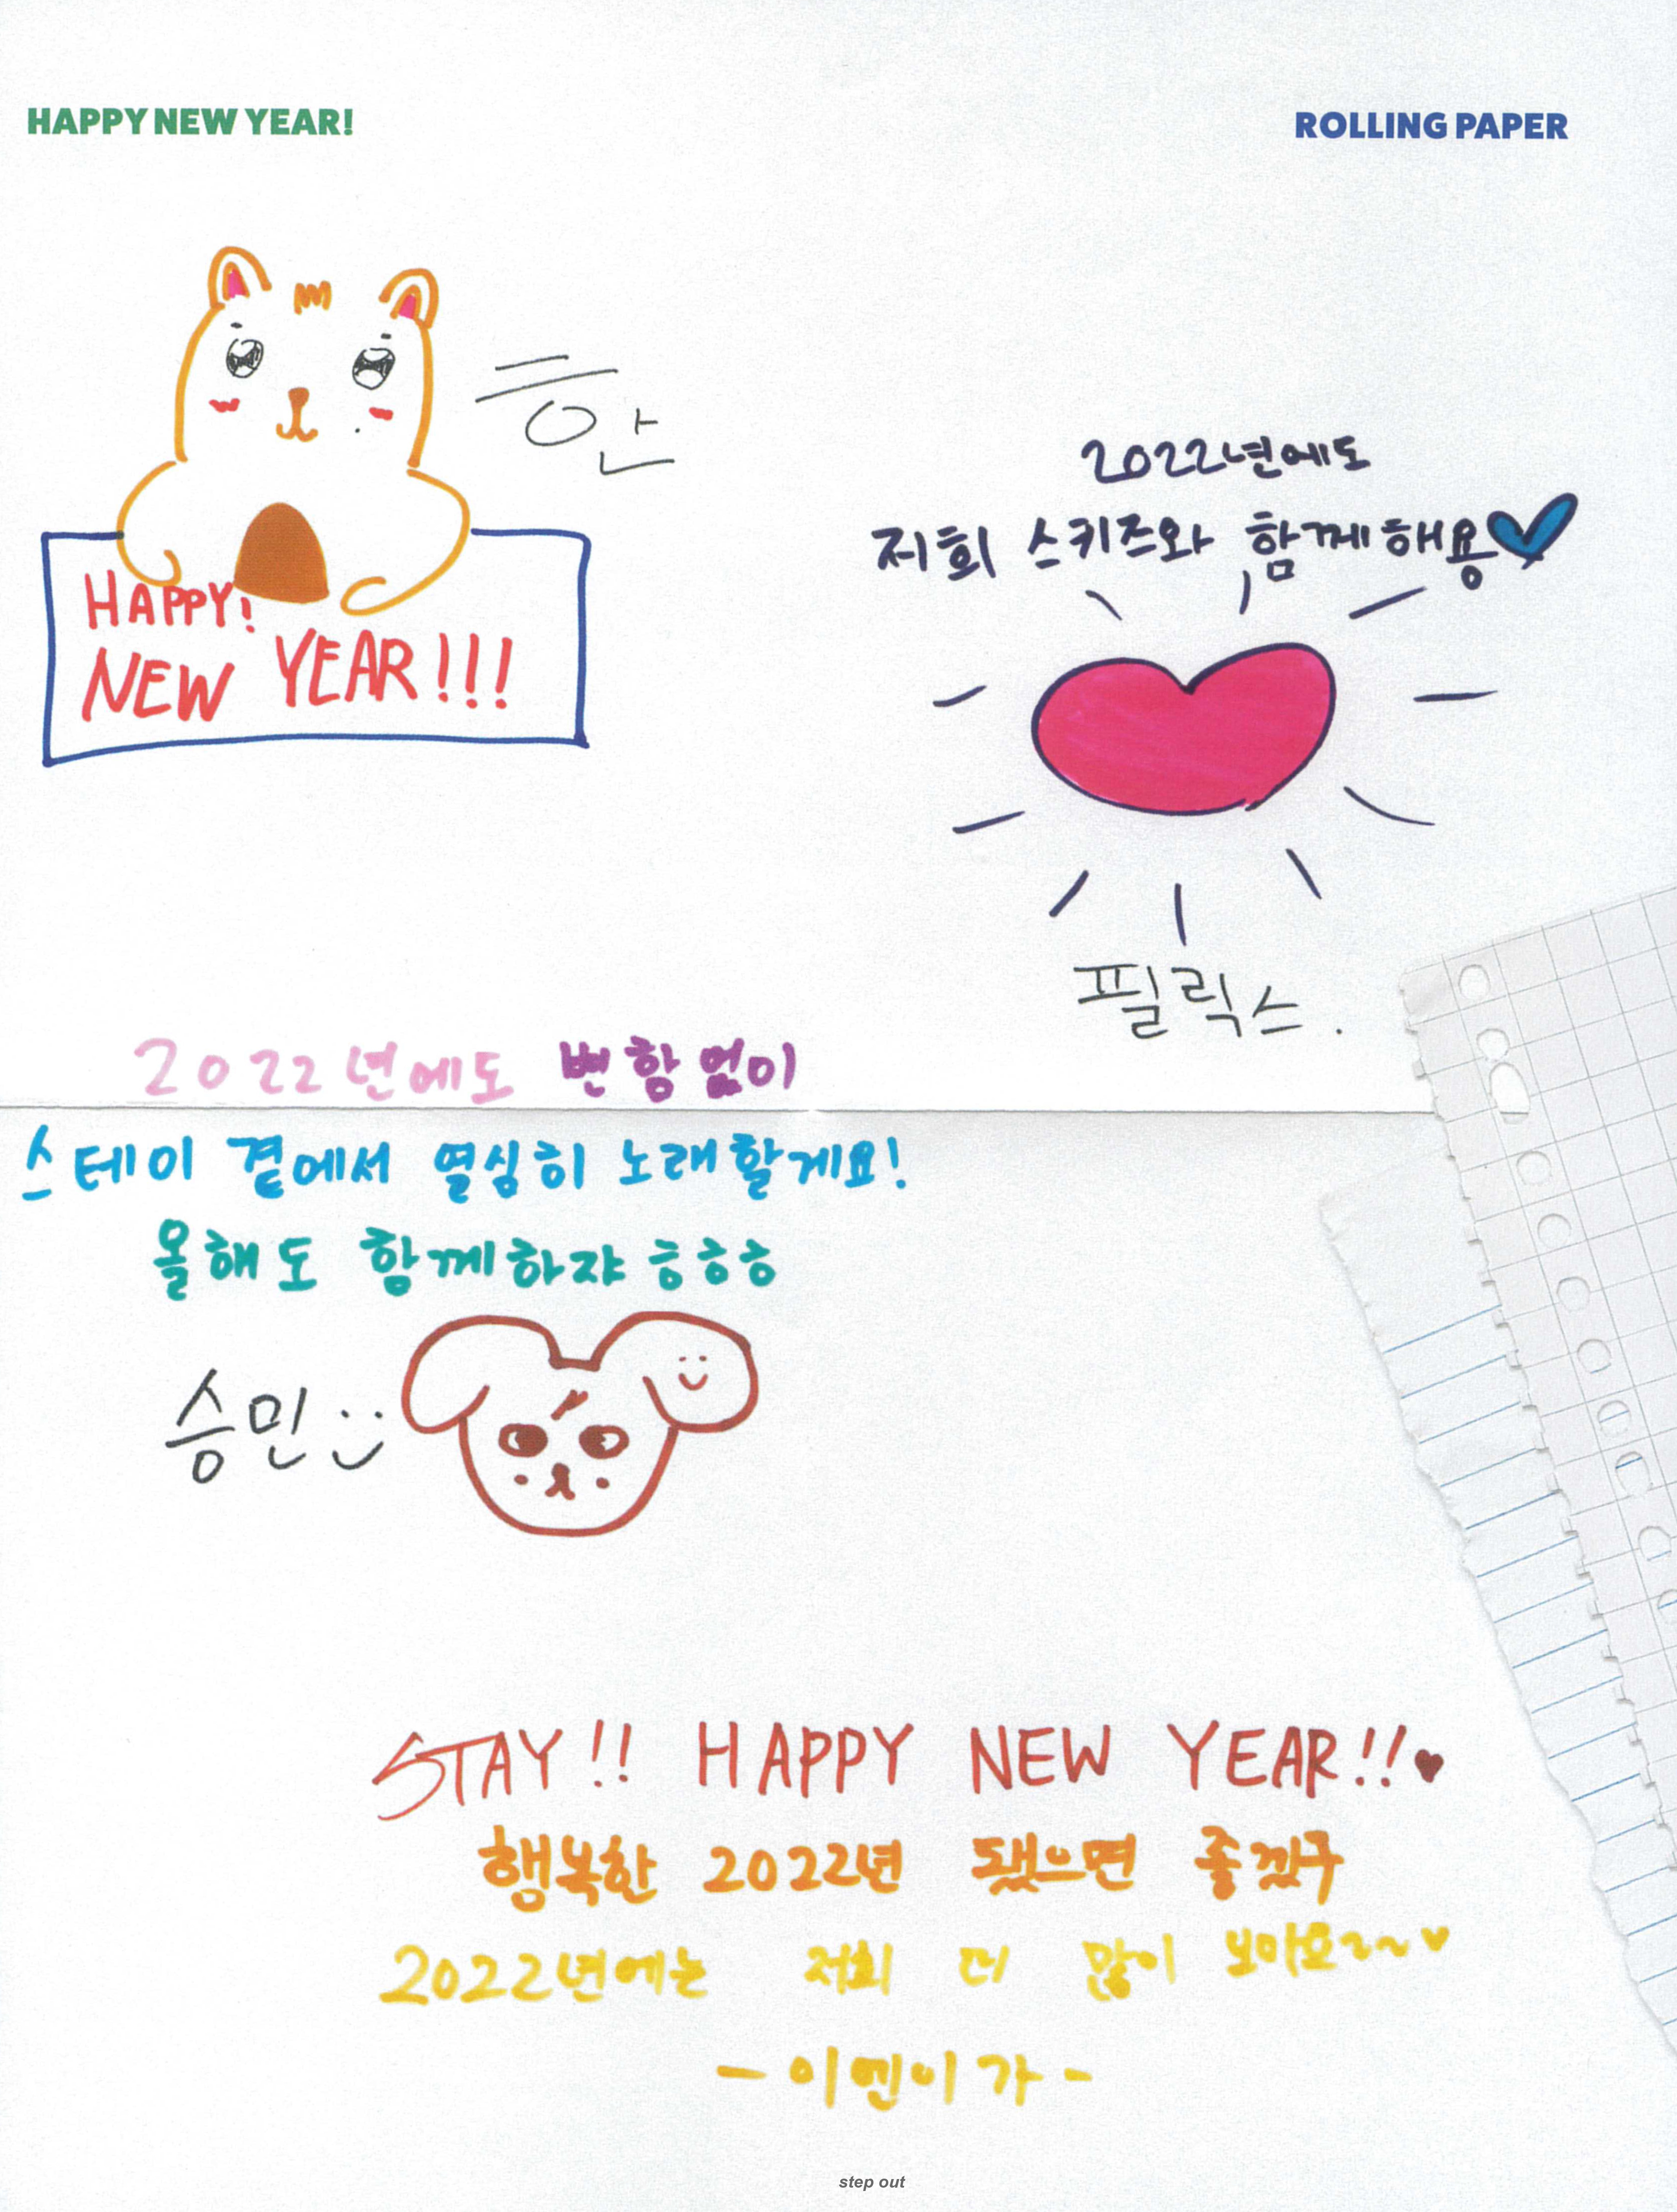 HAPPY NEW YEAR!
ROLLING PAPER
한
HAPPY!
NEW YEAR!!!
2022년에도
저희 스키즈와 함께해용
필릭스.
2022년에도 변함없이
스테이 곁에서 열심히 노래할게요!
올해도 함께하쟈 ㅎㅎㅎ
승민 :)
STAY!! HAPPY NEW YEAR!!♥
행복한 2022년 됐으면 좋겠구
2022년에는 저희 더 많이 보아요~~♥
-이엔이가-
step out